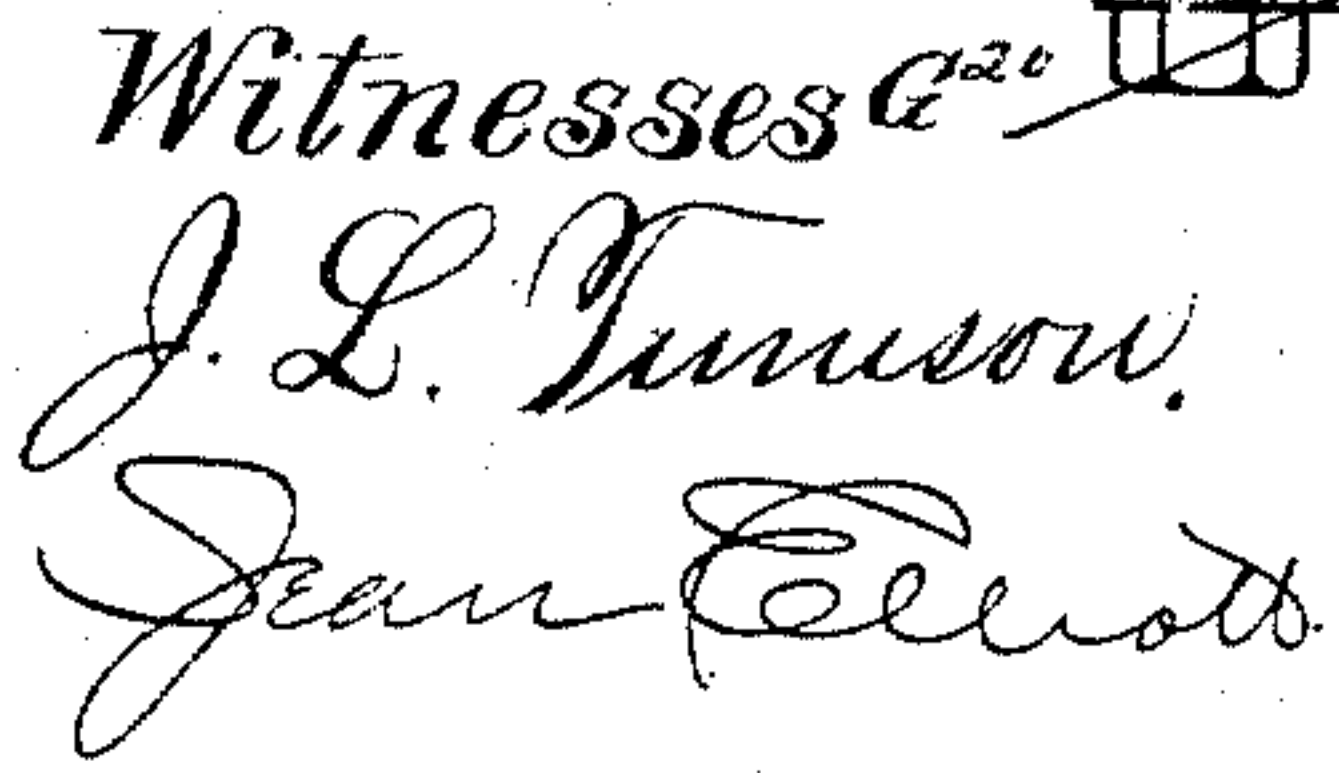 Witnesses G²⁰
J. L. Tunison.
Jean Elliott.